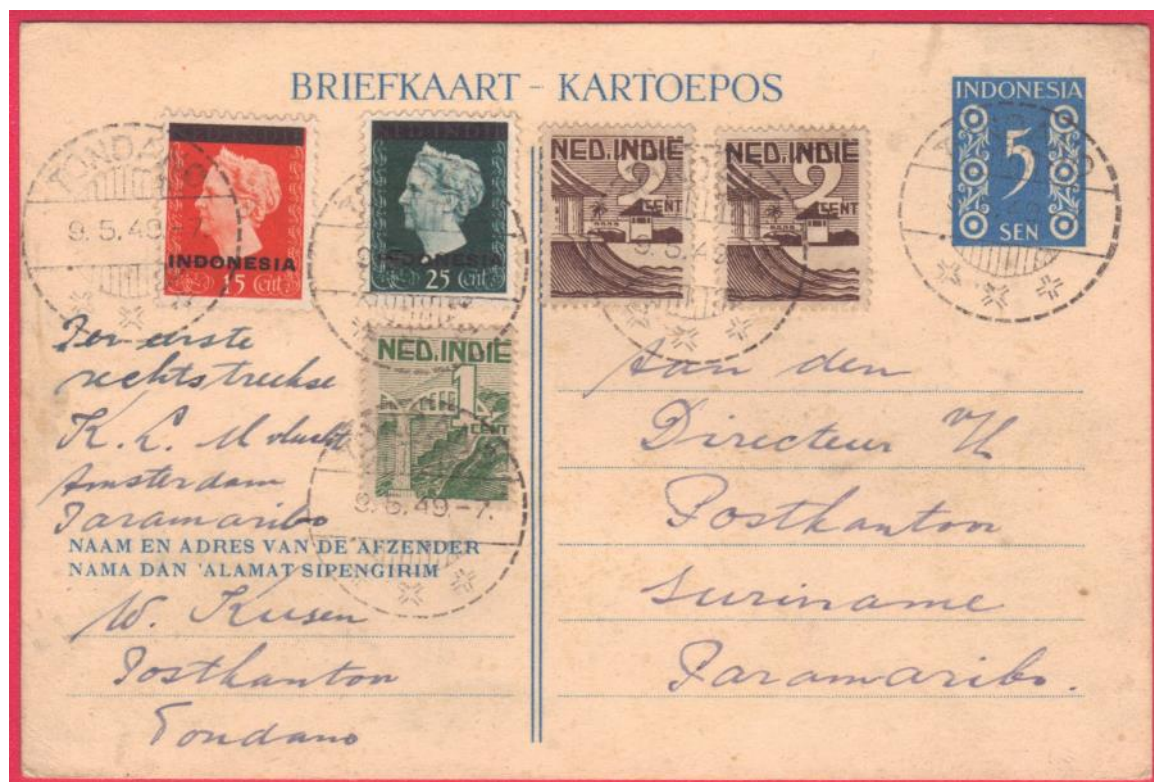 BRIEFKAART - KARTOEPOS
INDONESIA
5
SEN
NED. INDIË
INDONESIA
15 Cent
NED. INDIË
INDONESIA
25 Cent
NED. INDIË
2
CENT
NED. INDIË
2
CENT
NED. INDIË
1
CENT
TONDANO
9.5.49-7.
Per eerste
rechtstreekse
K. L. M vlucht
Amsterdam
Paramaribo
NAAM EN ADRES VAN DE AFZENDER
NAMA DAN 'ALAMAT SIPENGIRIM
W. Kusen
Postkantoor
Tondano
Aan den
Directeur v/h
Postkantoor
Suriname
Paramaribo.